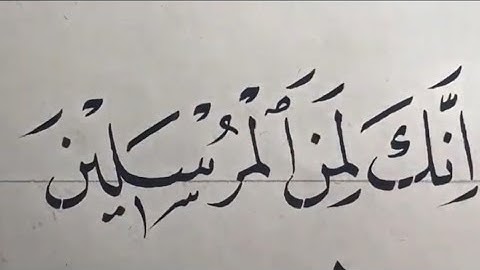 اِنَّكَ لَمِنَ ٱلْمُرْسَلِيْنَ